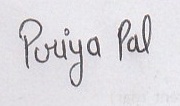 Puriya Pal